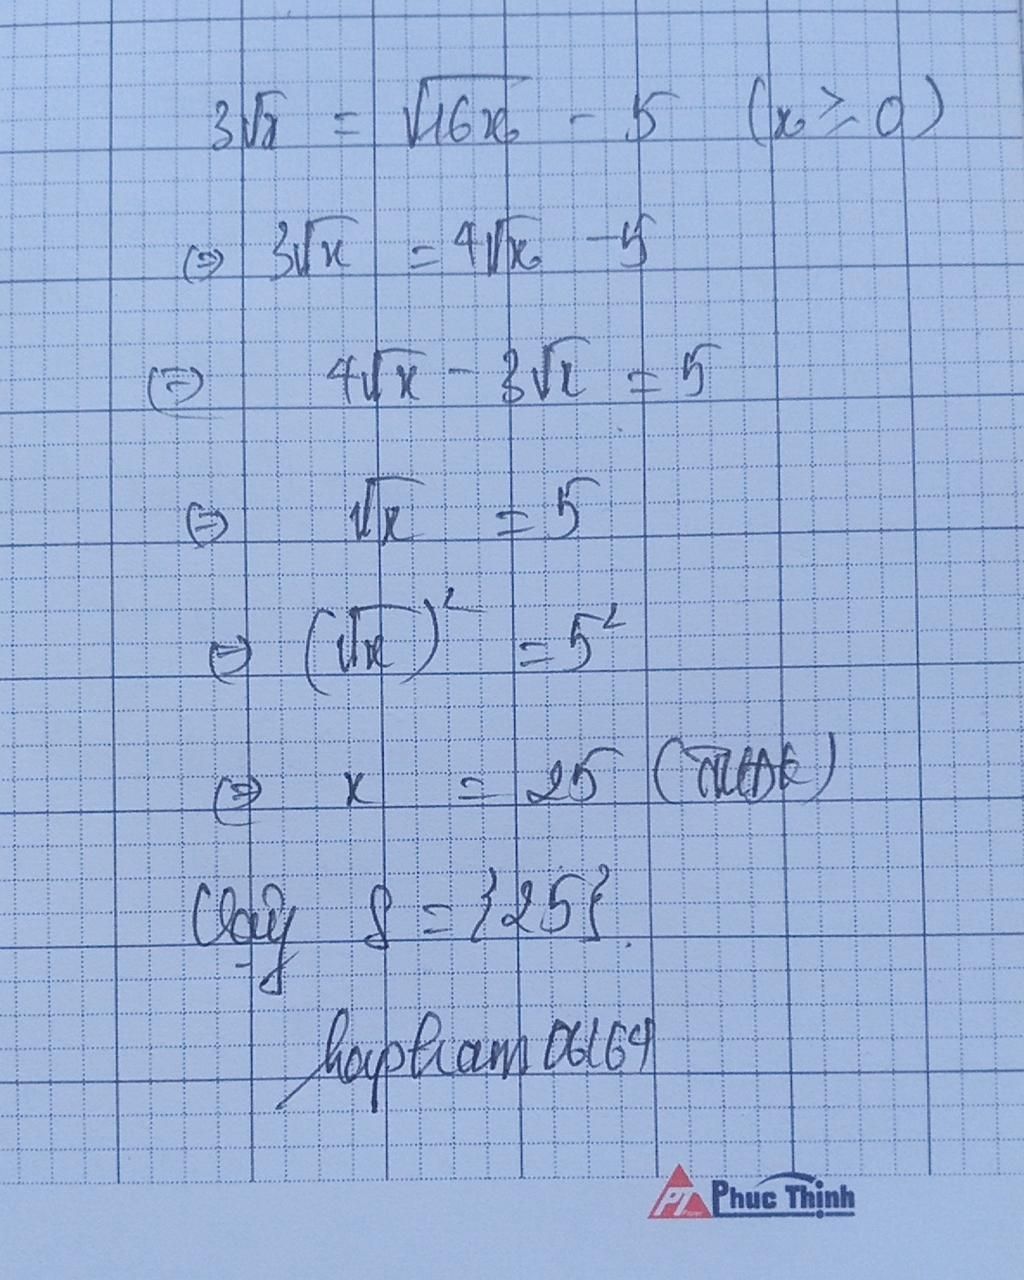 3√x = √16x - 5 (x ≥ 0)
⇔ 3√x = 4√x - 5
⇔ 4√x - 3√x = 5
⇔ √x = 5
⇔ (√x)² = 5²
⇔ x = 25 (TMĐK)
Vậy S = {25}.
PT Phuc Thịnh